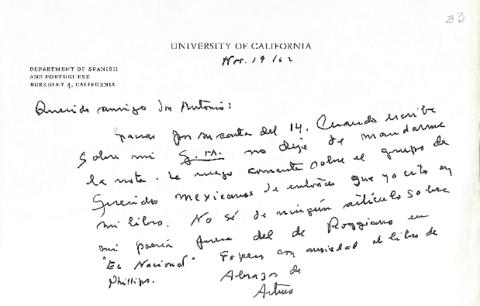 33
UNIVERSITY OF CALIFORNIA
Nov. 19/62
DEPARTMENT OF SPANISH
AND PORTUGUESE
BERKELEY 4, CALIFORNIA
Querido amigo don Antonio:
Gracias por su carta del 14. Cuando escribe
sobre mi G. M. no deje de mandarme
la nota. Le ruego comente sobre el grupo de
mexicanos de entonces que yo cito en
mi libro. No sé de ningún artículo sobre
mi poesía fuera del de Roggiano en
"El Nacional" Espero con ansiedad el libro de
Phillips.
Abrazos de
Arturo